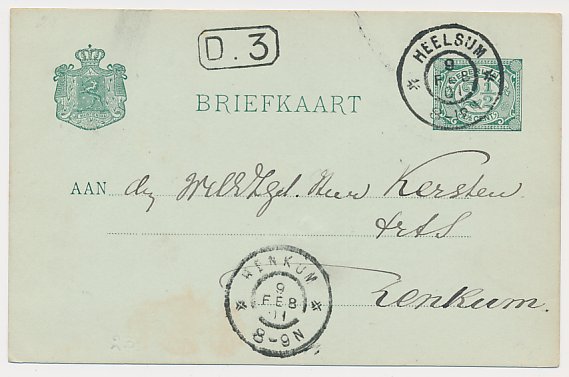 D.3
HEELSUM
9
FEB
01
BRIEFKAART
AAN den WelEdgel. Heer Kersten
Arts
Renkum.
RENKUM
9
FEB
01
8-9N